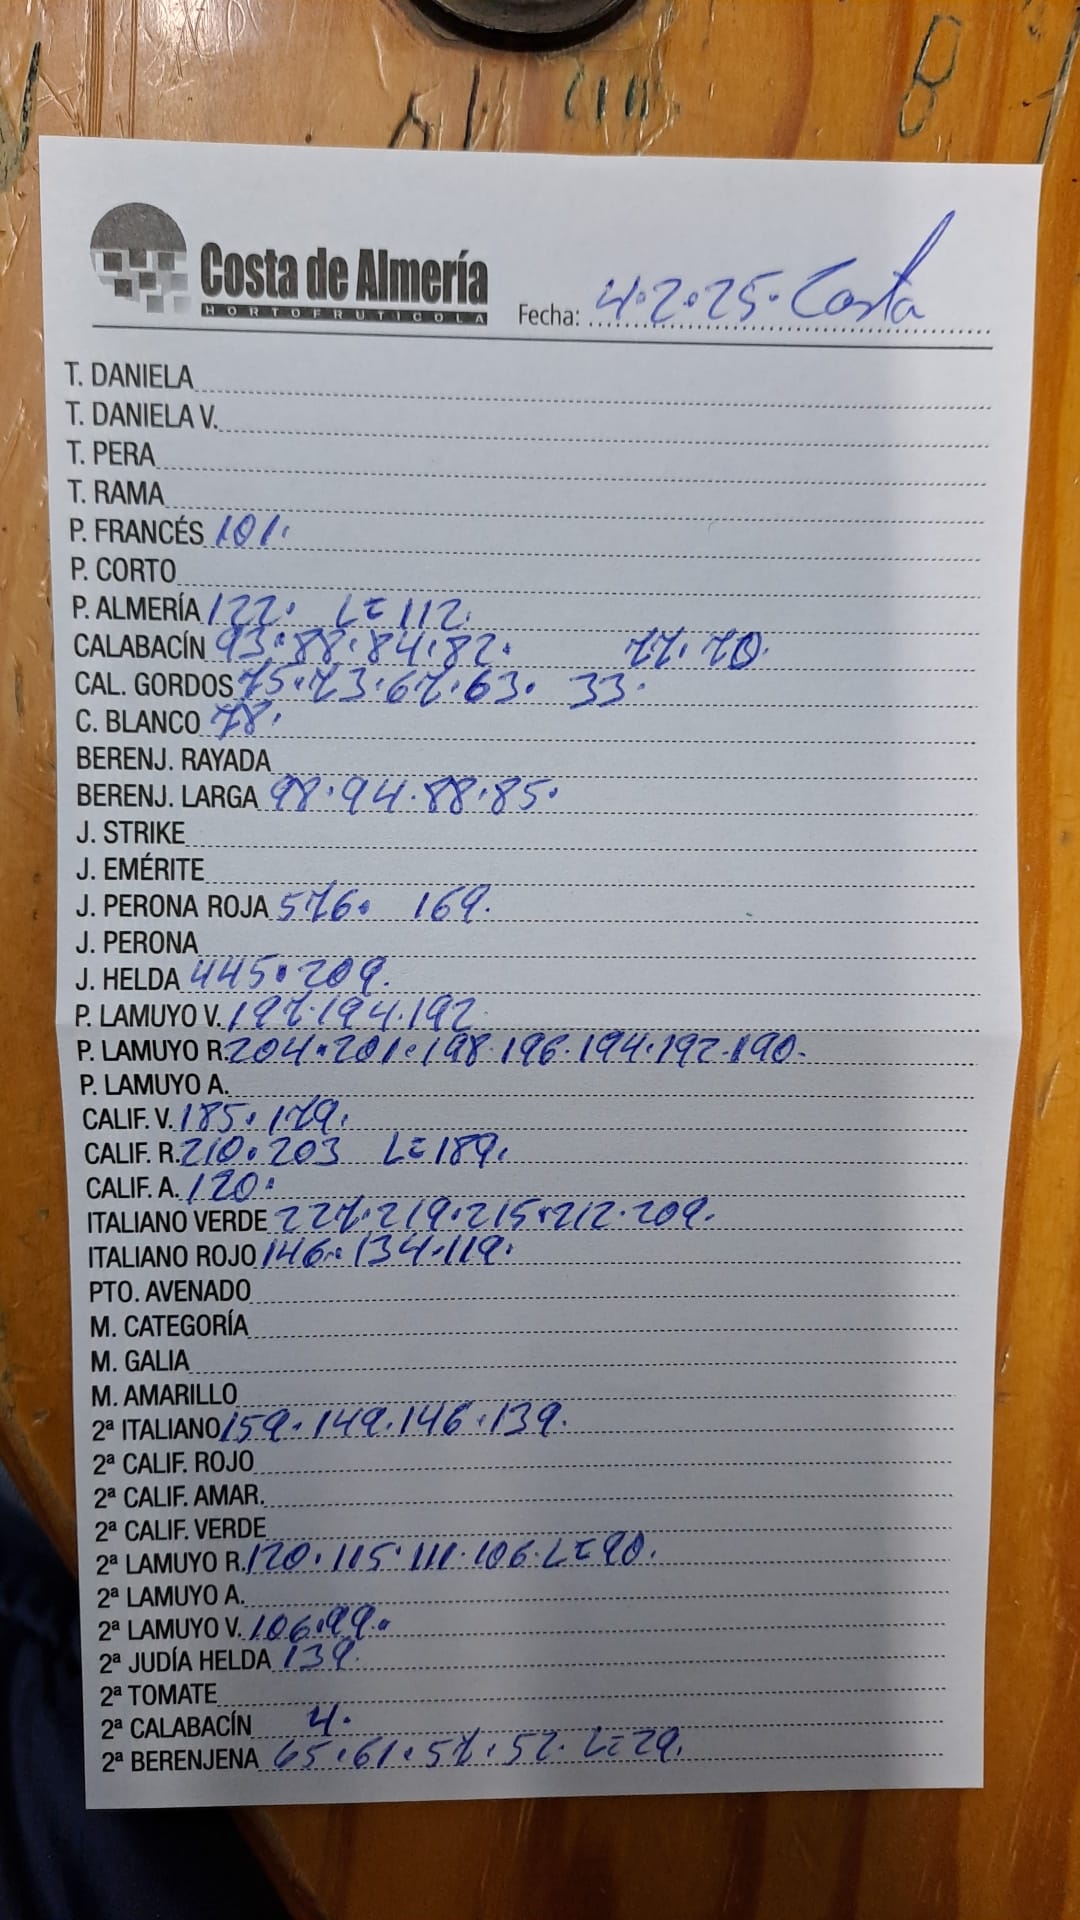 Costa de Almería
HORTOFRUTICOLA
Fecha: 4.2.25. Costa
T. DANIELA
T. DANIELA V.
T. PERA
T. RAMA
P. FRANCÉS 101.
P. CORTO
P. ALMERÍA 122. L= 112.
CALABACÍN 93.88.84.82. 77.70.
CAL. GORDOS 75.73.67.63. 33.
C. BLANCO 78.
BERENJ. RAYADA
BERENJ. LARGA 98.94.88.85.
J. STRIKE
J. EMÉRITE
J. PERONA ROJA 576. 169.
J. PERONA
J. HELDA 445.209.
P. LAMUYO V. 197.194.192
P. LAMUYO R. 204.201.198.196.194.192.190.
P. LAMUYO A.
CALIF. V. 185.179.
CALIF. R. 210.203 L= 189.
CALIF. A. 120.
ITALIANO VERDE 227.219.215.212.209.
ITALIANO ROJO 146.134.119.
PTO. AVENADO
M. CATEGORÍA
M. GALIA
M. AMARILLO
2ª ITALIANO 159.149.146.139.
2ª CALIF. ROJO
2ª CALIF. AMAR.
2ª CALIF. VERDE
2ª LAMUYO R. 120.115.111.106. L= 90.
2ª LAMUYO A.
2ª LAMUYO V. 106.99.
2ª JUDÍA HELDA 139.
2ª TOMATE
2ª CALABACÍN 4.
2ª BERENJENA 65.61.57.52. L= 29.